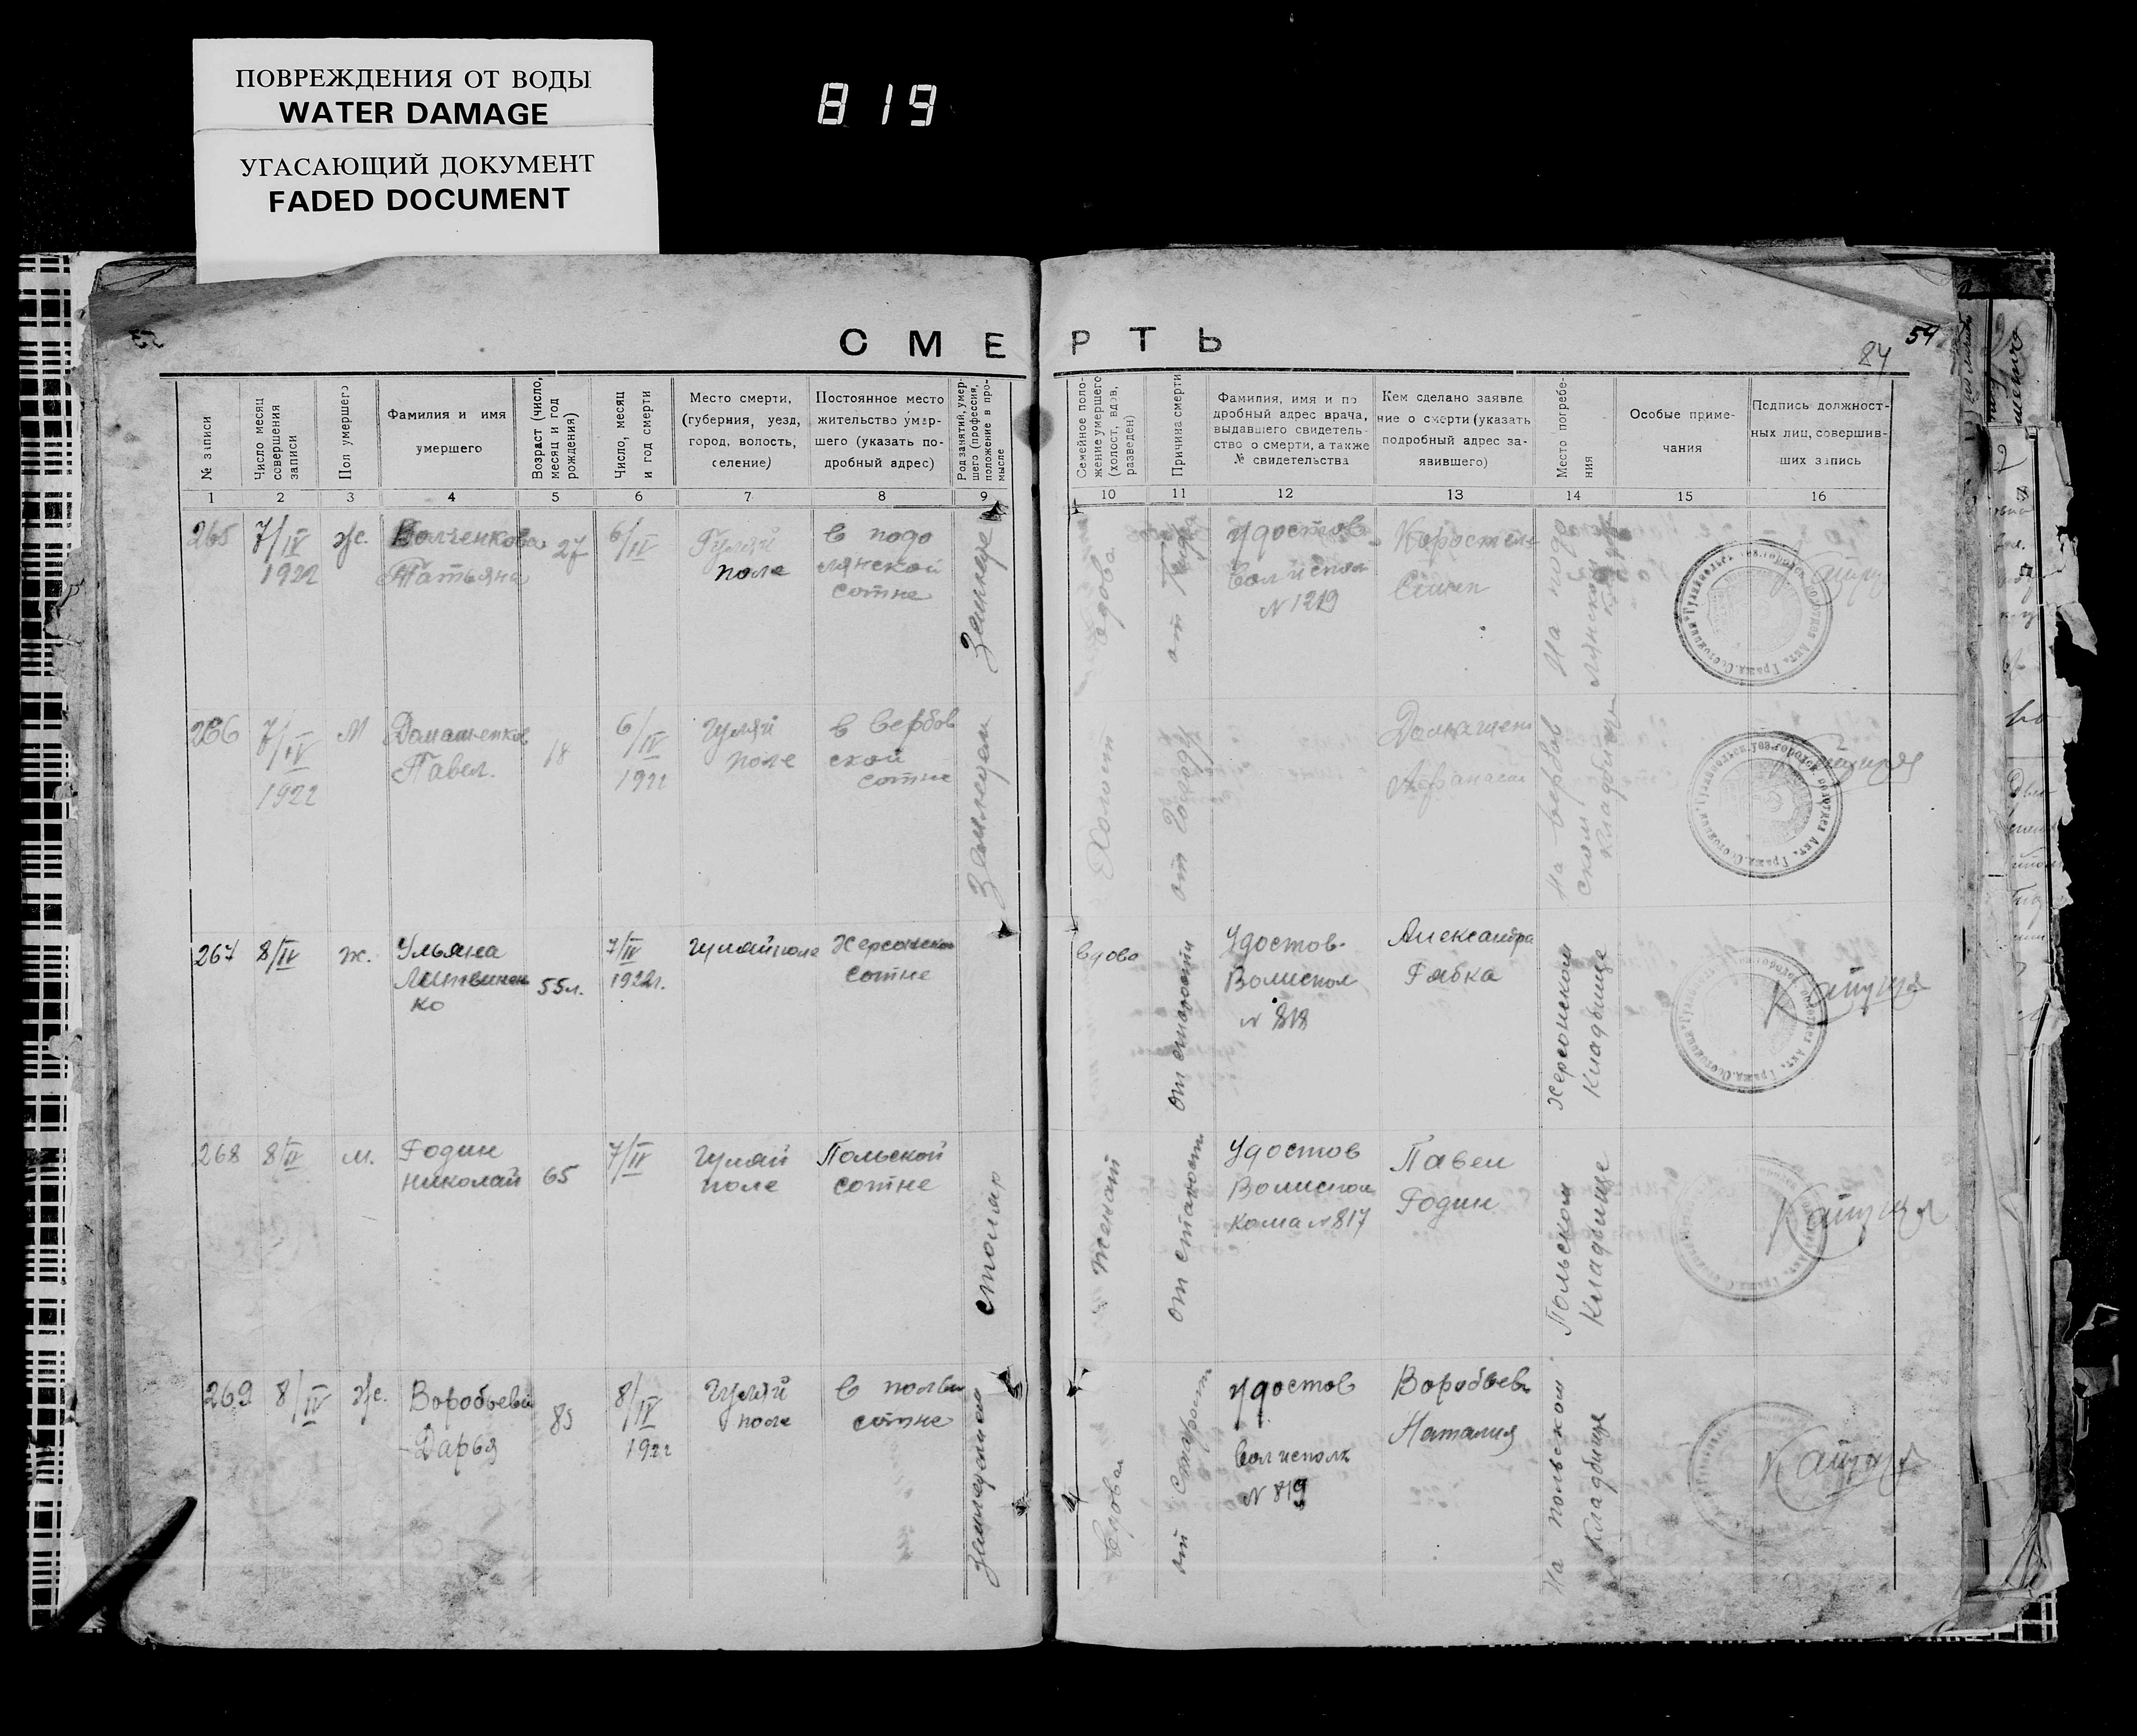 ПОВРЕЖДЕНИЯ ОТ ВОДЫ
WATER DAMAGE
УГАСАЮЩИЙ ДОКУМЕНТ
FADED DOCUMENT
819
СМЕРТЬ
54
84
№ записи
Число месяц
совершения
записи
Пол умершего
Фамилия и имя
умершего
Возраст (число,
месяц и год
рождения)
Число, месяц
и год смерти
Место смерти,
(губерния, уезд,
город, волость,
селение)
Постоянное место
жительство умер-
шего (указать по-
дробный адрес)
Род занятий, умер-
шего (профессия,
положение в про-
мысле
Семейное поло-
жение умершего
(холост, вдов,
разведен)
Причина смерти
Фамилия, имя и по
дробный адрес врача,
выдавшего свидетель-
ство о смерти, а также
№ свидетельства
Кем сделано заявле
ние о смерти (указать
подробный адрес за-
явившего)
Место погребе-
ния
Особые приме-
чания
Подпись должност-
ных лиц, совершив-
ших запись
1 2 3 4 5 6 7 8 9 10 11 12 13 14 15 16
265
7/IV
1922
Ж.
Волченкова
Татьяна
27
6/IV
Гуляй
поле
в подо
лянской
сотне
вдова
от
Удостов
Волиспол
N 1219
Коростель
Семен
На подо
лянском
266
7/IV
1922
М
Домашенков
Павел.
18
6/IV
1922
Гуляй
поле
в вербов
ской
сотне
Землецем
Холост
от голоду
Афанасий
на вербов
ском
кладбище
267
8/IV
ж.
Ульяна
Литвинен
ко
55л.
7/IV
1922г.
Гуляйполе
Херсонской
сотне
вдова
от старости
Удостов-
Волиспол
N 818
Александра
Рябка
Херсонском
Кладбище
268
8/IV
м.
Годин
Николай
65
7/IV
Гуляй
поле
Польской
сотне
столяр
женат
от старости
Удостов
Волиспол
кома N 817
Павел
Годин
Польском
Кладбище
269
8/IV
Ж.
Воробьева
Дарья
85
8/IV
1922
Гуляй
поле
в польск
сотне
вдова
от старости
удостов
Волисполк
N 819
Воробьева
Наталия
На польском
Кладбище